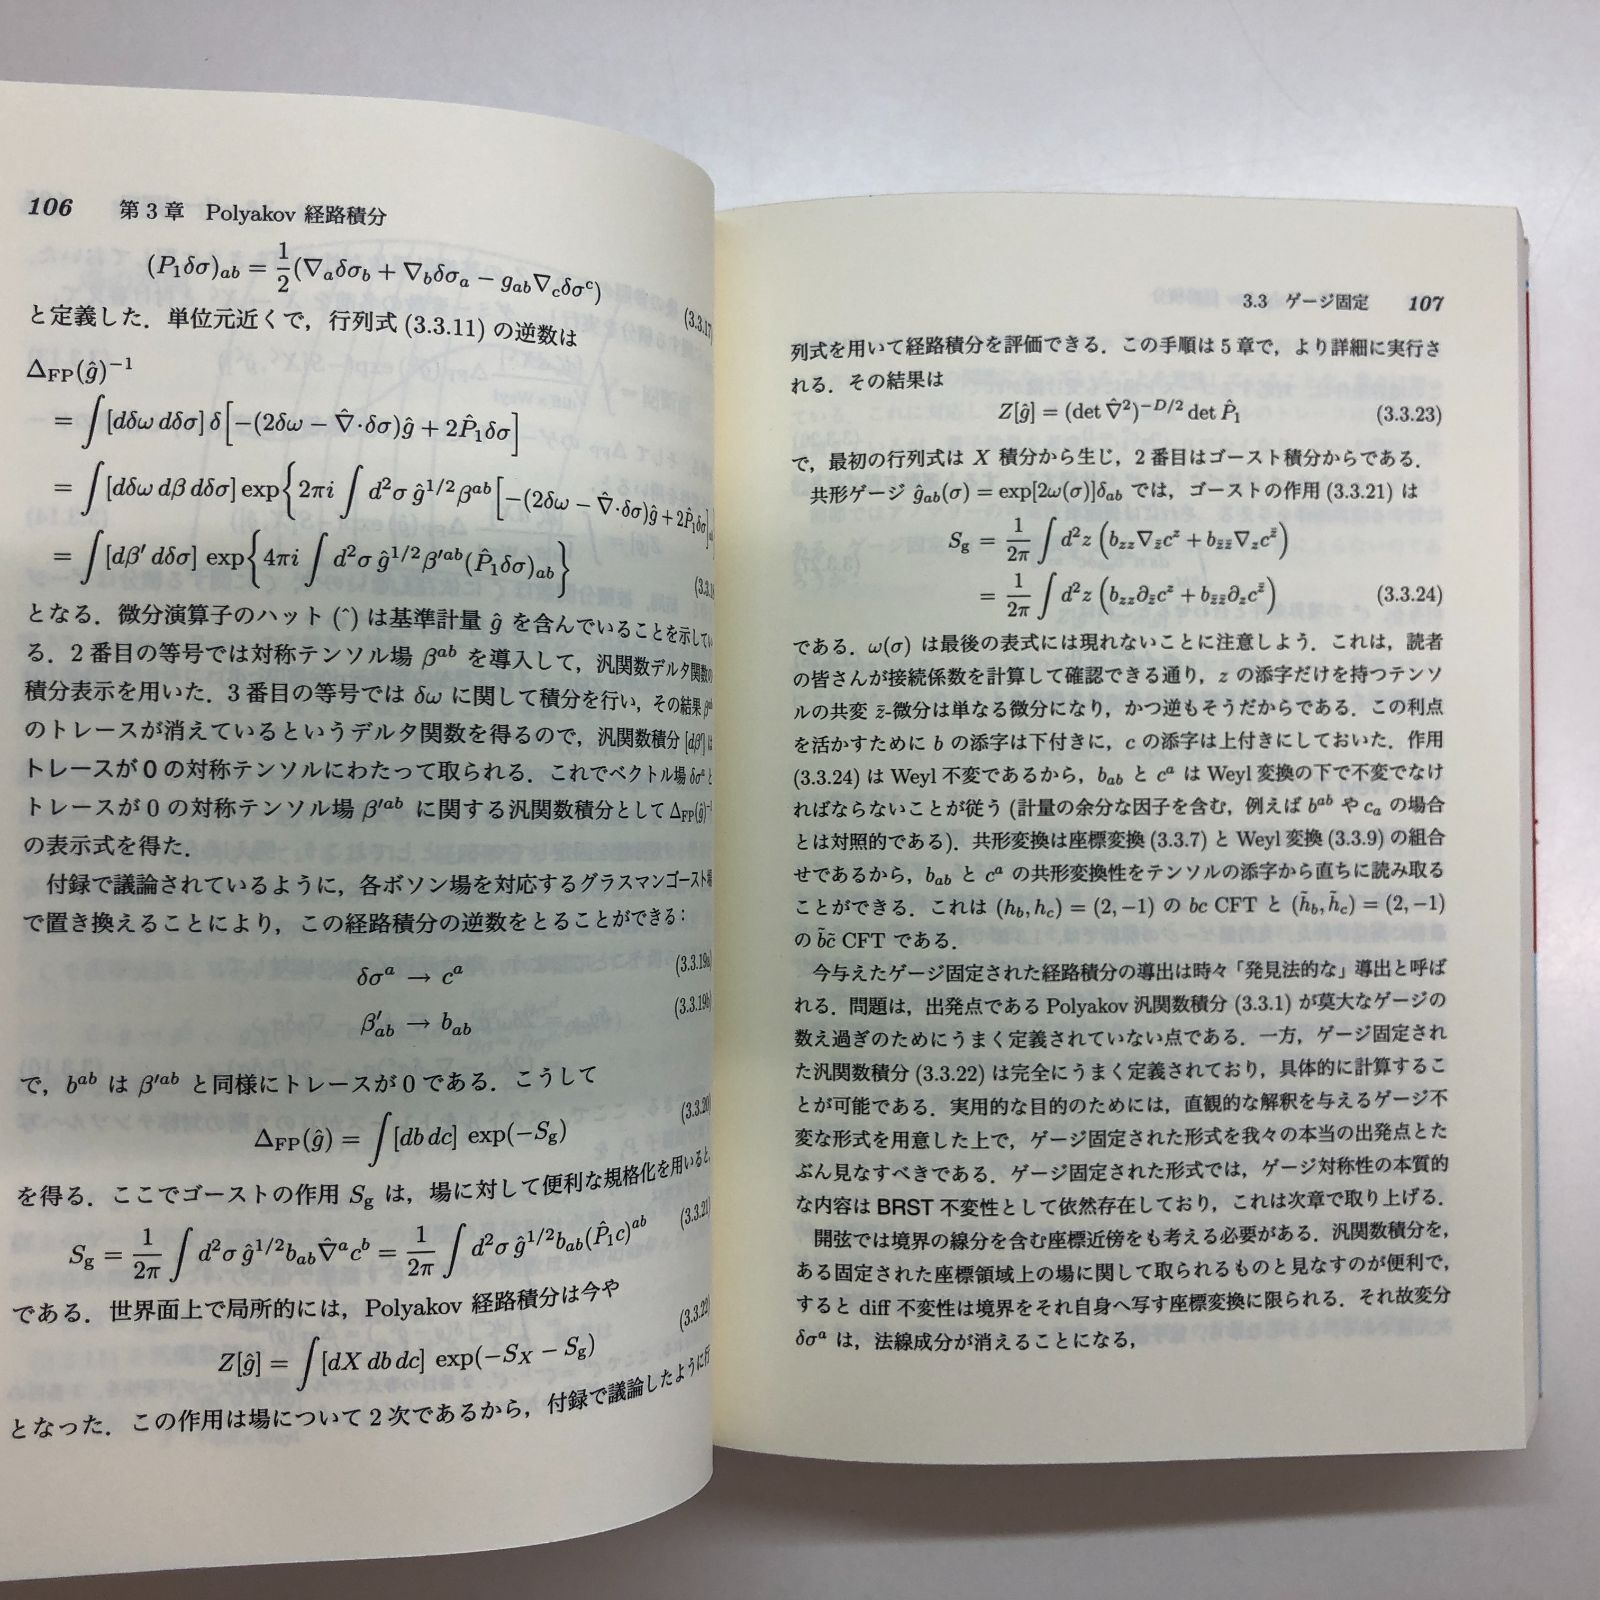 106 第3章 Polyakov 経路積分
(P₁δσ)ab = 1/2(∇aδσb + ∇bδσa − gab∇cδσᶜ)
(3.3.17
と定義した．単位元近くで，行列式 (3.3.11) の逆数は
ΔFP(ĝ)⁻¹
= ∫[dδω dδσ] δ[−(2δω − ∇̂·δσ)ĝ + 2P̂₁δσ]
= ∫[dδω dβ dδσ] exp{2πi ∫ d²σ ĝ^{1/2} β^{ab}[−(2δω − ∇̂·δσ)ĝ + 2P̂₁δσ]
= ∫[dβ′ dδσ] exp{4πi ∫ d²σ ĝ^{1/2} β′^{ab}(P̂₁δσ)ab}
(3.3.18
となる．微分演算子のハット (^) は基準計量 ĝ を含んでいることを示してい
る．2番目の等号では対称テンソル場 β^{ab} を導入して，汎関数デルタ関数の
積分表示を用いた．3番目の等号では δω に関して積分を行い，その結果 β^{ab}
のトレースが消えているというデルタ関数を得るので，汎関数積分 [dβ′] は
トレースが0の対称テンソルにわたって取られる．これでベクトル場 δσᵃ と
トレースが0の対称テンソル場 β′^{ab} に関する汎関数積分として ΔFP(ĝ)⁻¹
の表示式を得た．
付録で議論されているように，各ボソン場を対応するグラスマンゴースト場
で置き換えることにより，この経路積分の逆数をとることができる：
δσᵃ → cᵃ (3.3.19a)
β′ab → bab (3.3.19b)
で，b^{ab} は β′^{ab} と同様にトレースが0である．こうして
ΔFP(ĝ) = ∫[db dc] exp(−Sg) (3.3.20)
を得る．ここでゴーストの作用 Sg は，場に対して便利な規格化を用いると，
Sg = 1/2π ∫ d²σ ĝ^{1/2} bab ∇̂ᵃcᵇ = 1/2π ∫ d²σ ĝ^{1/2} bab(P̂₁c)^{ab} (3.3.21)
である．世界面上で局所的には，Polyakov 経路積分は今や
Z[ĝ] = ∫[dX db dc] exp(−SX − Sg) (3.3.22)
となった．この作用は場について2次であるから，付録で議論したように行
3.3 ゲージ固定 107
列式を用いて経路積分を評価できる．この手順は5章で，より詳細に実行さ
れる．その結果は
Z[ĝ] = (det ∇̂²)^{−D/2} det P̂₁ (3.3.23)
で，最初の行列式は X 積分から生じ，2番目はゴースト積分からである．
共形ゲージ ĝab(σ) = exp[2ω(σ)]δab では，ゴーストの作用 (3.3.21) は
Sg = 1/2π ∫ d²z (bzz∇z̄cᶻ + bz̄z̄∇zc^{z̄})
= 1/2π ∫ d²z (bzz∂z̄cᶻ + bz̄z̄∂zc^{z̄}) (3.3.24)
である．ω(σ) は最後の表式には現れないことに注意しよう．これは，読者
の皆さんが接続係数を計算して確認できる通り，z の添字だけを持つテンソ
ルの共変 z̄-微分は単なる微分になり，かつ逆もそうだからである．この利点
を活かすために b の添字は下付きに，c の添字は上付きにしておいた．作用
(3.3.24) は Weyl 不変であるから，bab と cᵃ は Weyl 変換の下で不変でなけ
ればならないことが従う (計量の余分な因子を含む，例えば b^{ab} や ca の場合
とは対照的である)．共形変換は座標変換 (3.3.7) と Weyl 変換 (3.3.9) の組合
せであるから，bab と cᵃ の共形変換性をテンソルの添字から直ちに読み取る
ことができる．これは (hb, hc) = (2, −1) の bc CFT と (h̃b, h̃c) = (2, −1)
の b̃c̃ CFT である．
今与えたゲージ固定された経路積分の導出は時々「発見法的な」導出と呼ば
れる．問題は，出発点である Polyakov 汎関数積分 (3.3.1) が莫大なゲージの
数え過ぎのためにうまく定義されていない点である．一方，ゲージ固定され
た汎関数積分 (3.3.22) は完全にうまく定義されており，具体的に計算するこ
とが可能である．実用的な目的のためには，直観的な解釈を与えるゲージ不
変な形式を用意した上で，ゲージ固定された形式を我々の本当の出発点とた
ぶん見なすべきである．ゲージ固定された形式では，ゲージ対称性の本質的
な内容は BRST 不変性として依然存在しており，これは次章で取り上げる．
開弦では境界の線分を含む座標近傍をも考える必要がある．汎関数積分を，
ある固定された座標領域上の場に関して取られるものと見なすのが便利で，
すると diff 不変性は境界をそれ自身へ写す座標変換に限られる．それ故変分
δσᵃ は，法線成分が消えることになる，